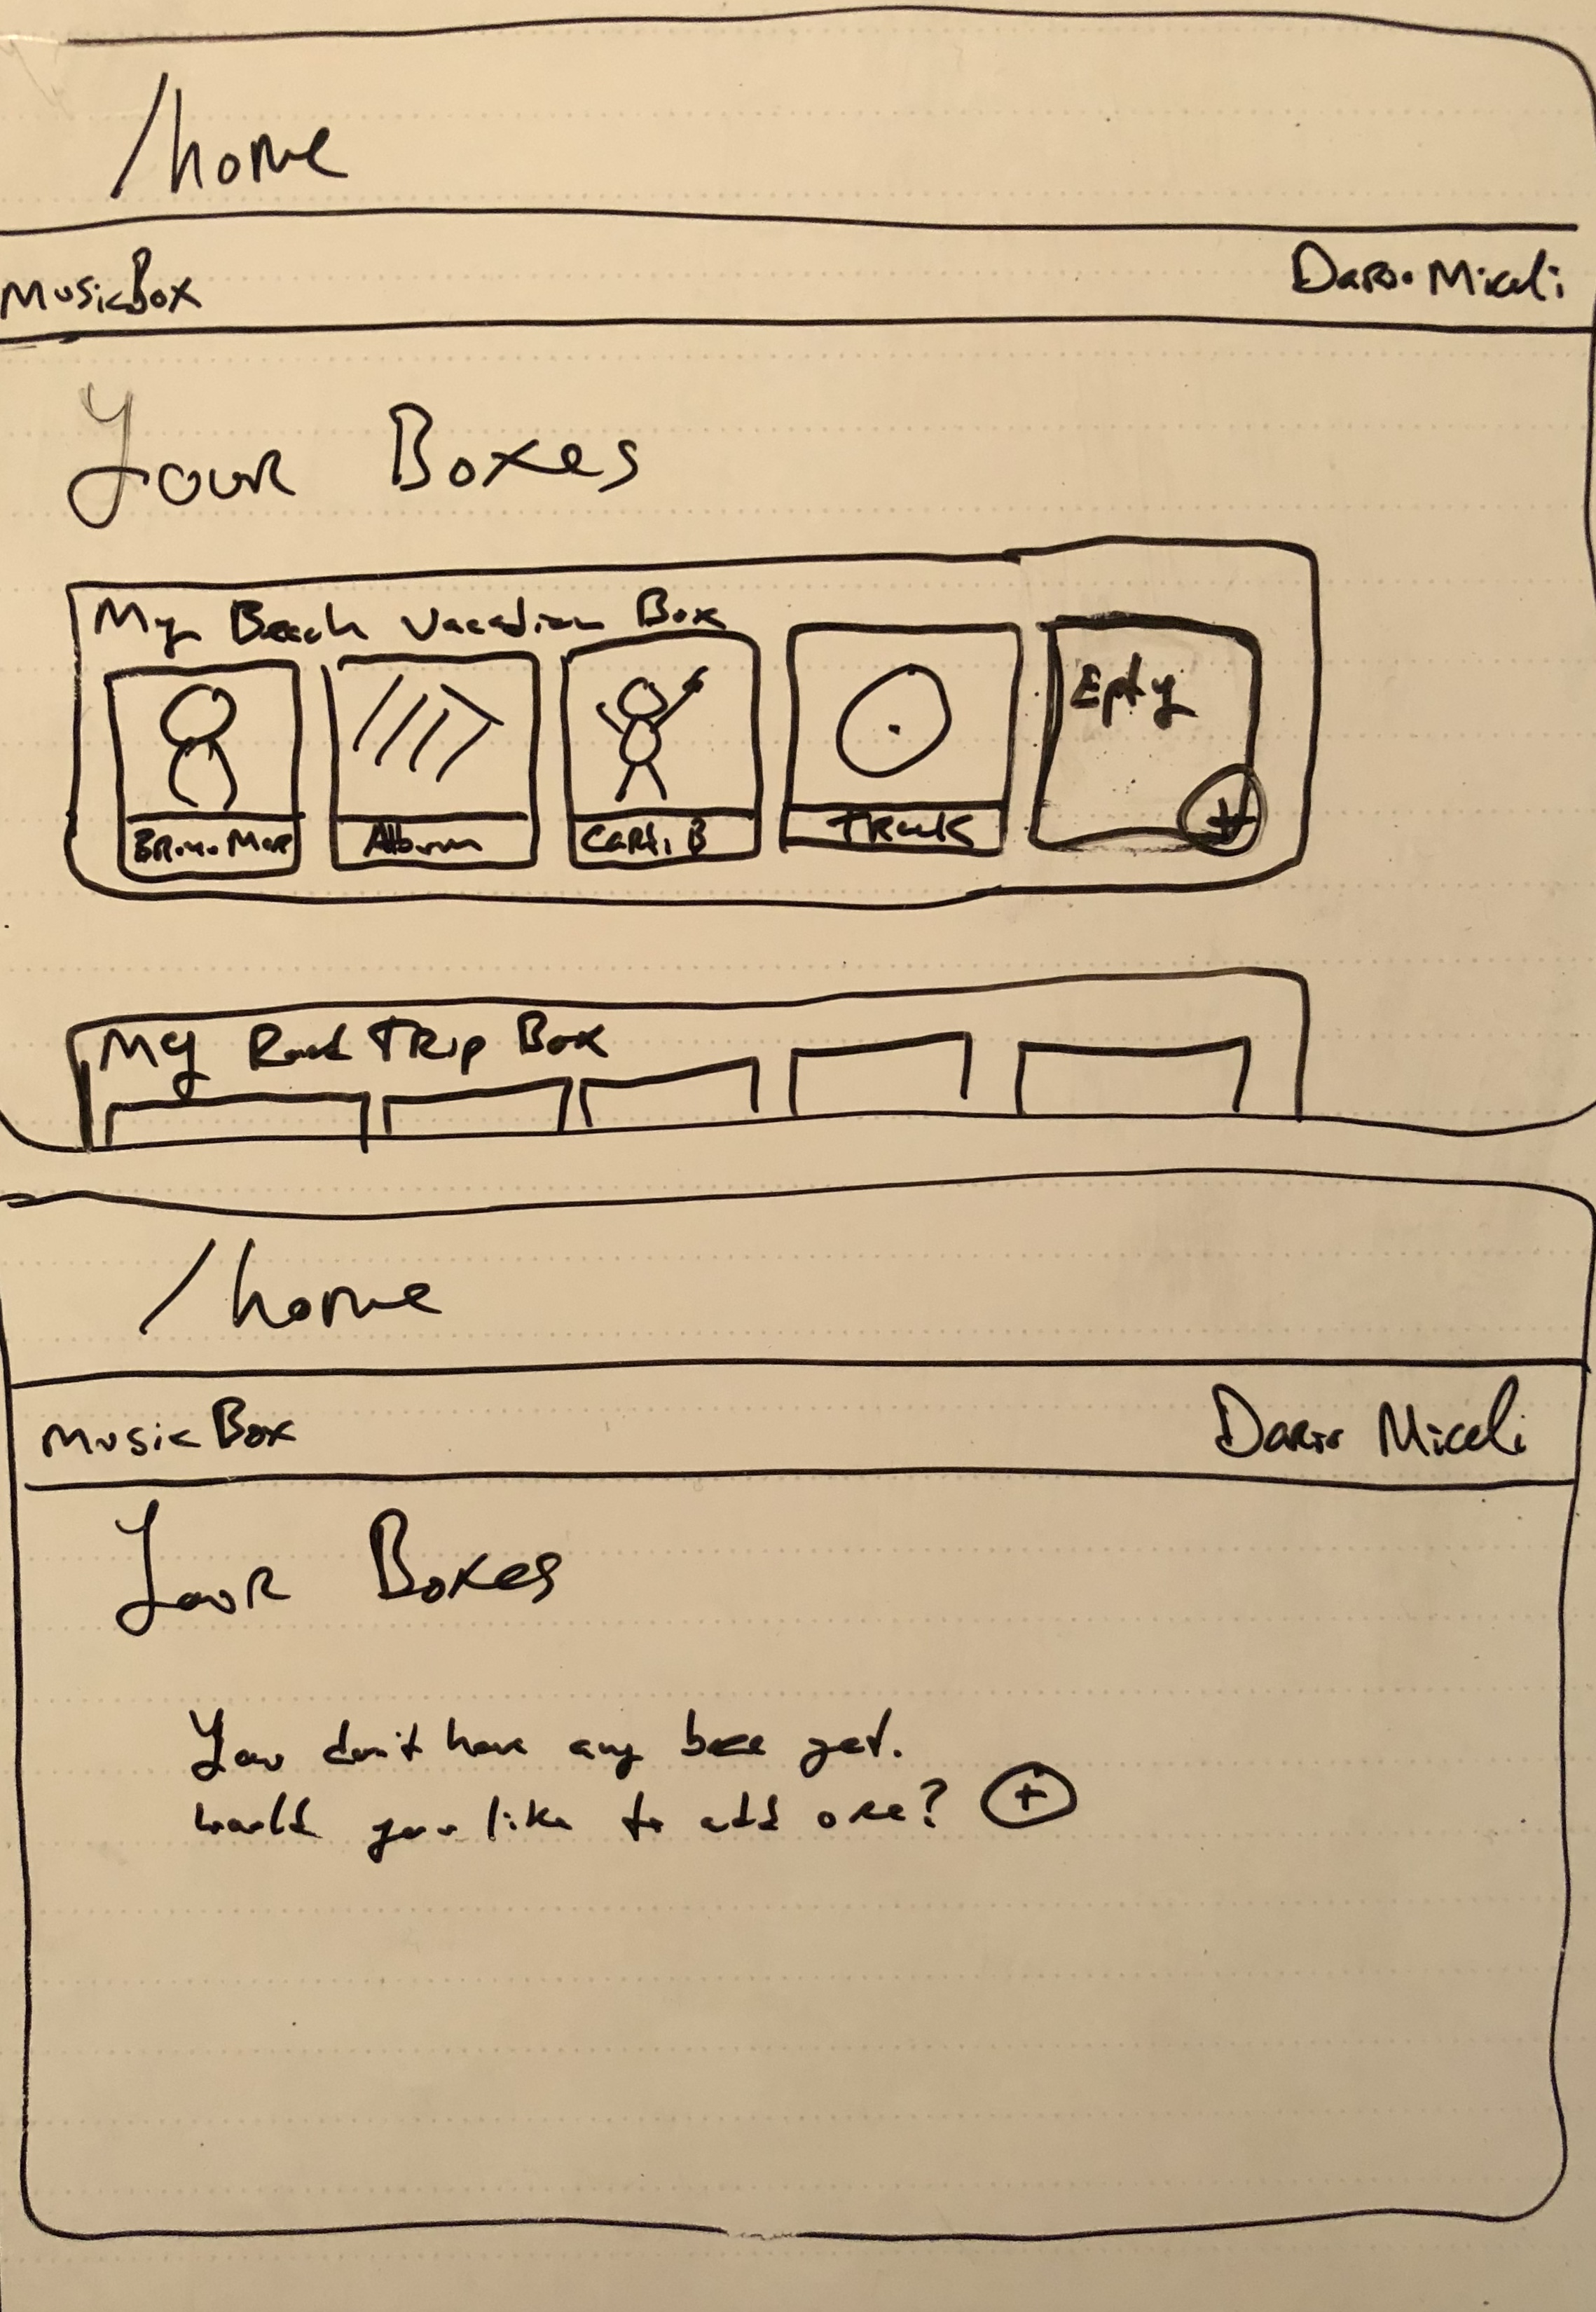 /home
MusicBox Dario Miceli
Your Boxes
My Beach Vacation Box
Bruno Mar Album Cardi B Track Epty +
My Road Trip Box
/home
MusicBox Dario Miceli
Your Boxes
You don't have any boxe yet.
would you like to add one? +